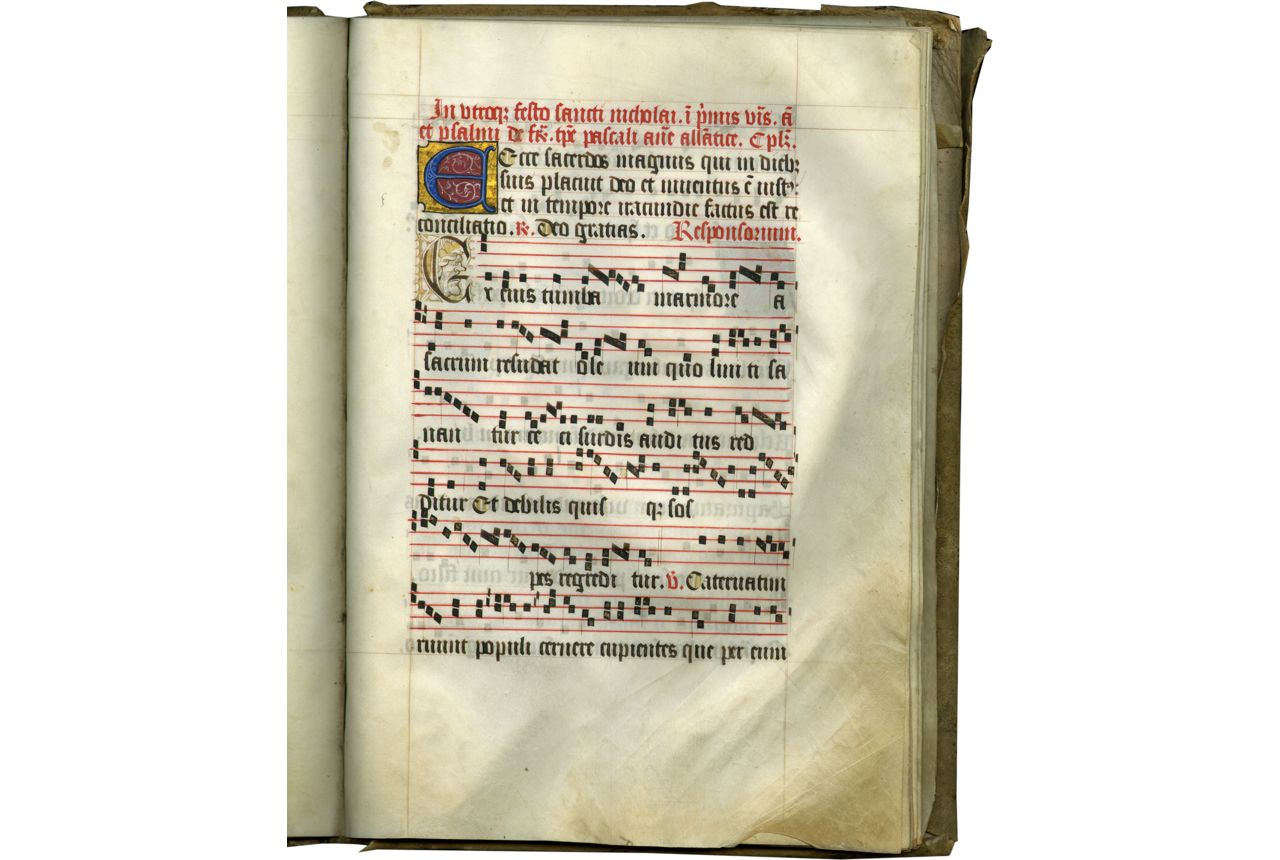 In vtroqꝫ festo sancti nicholai. ī pͥmis vīs. ā
et psalmi de fr̄. tp̄e pascali an̄e all̄atice. Cpl̄.
Ecce sacerdos magnus qui in diebꝫ
suis placuit deo et inuentus ē iustꝰ:
et in tempore iracundie factus est re
conciliatio. ℟. Deo gratias. Responsorium.
Ex eius tumba marmore a
sacrum resudat ole um quo lini ti sa
nan tur ce ci surdis audi tus red
ditur Et debilis quis qꝫ sos
pes regredi tur. ℣. Cateruatim
ruunt populi cernere cupientes que per eum